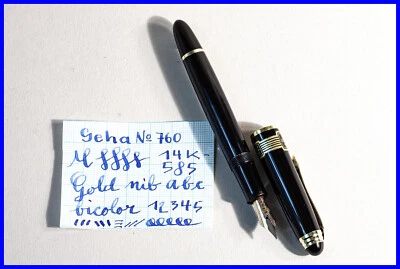 Geha No 760
M ffff 14K-
585
Gold nib abc
bicolor 12345